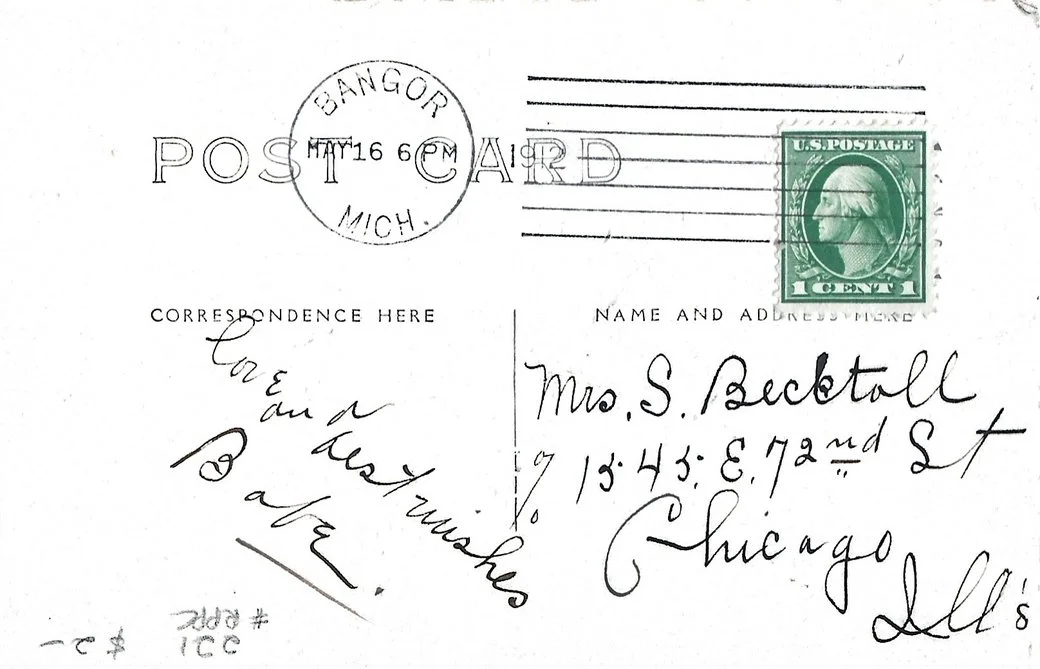 BANGOR
MAY 16 6 PM 1912
MICH.
POST CARD
U.S. POSTAGE
1 CENT 1
CORRESPONDENCE HERE
NAME AND ADDRESS HERE
Love
and
best wishes
Babe.
Mrs. S. Becktoll
% 1545. E. 72nd St
Chicago
Ill's
# RPPC
221 $2-